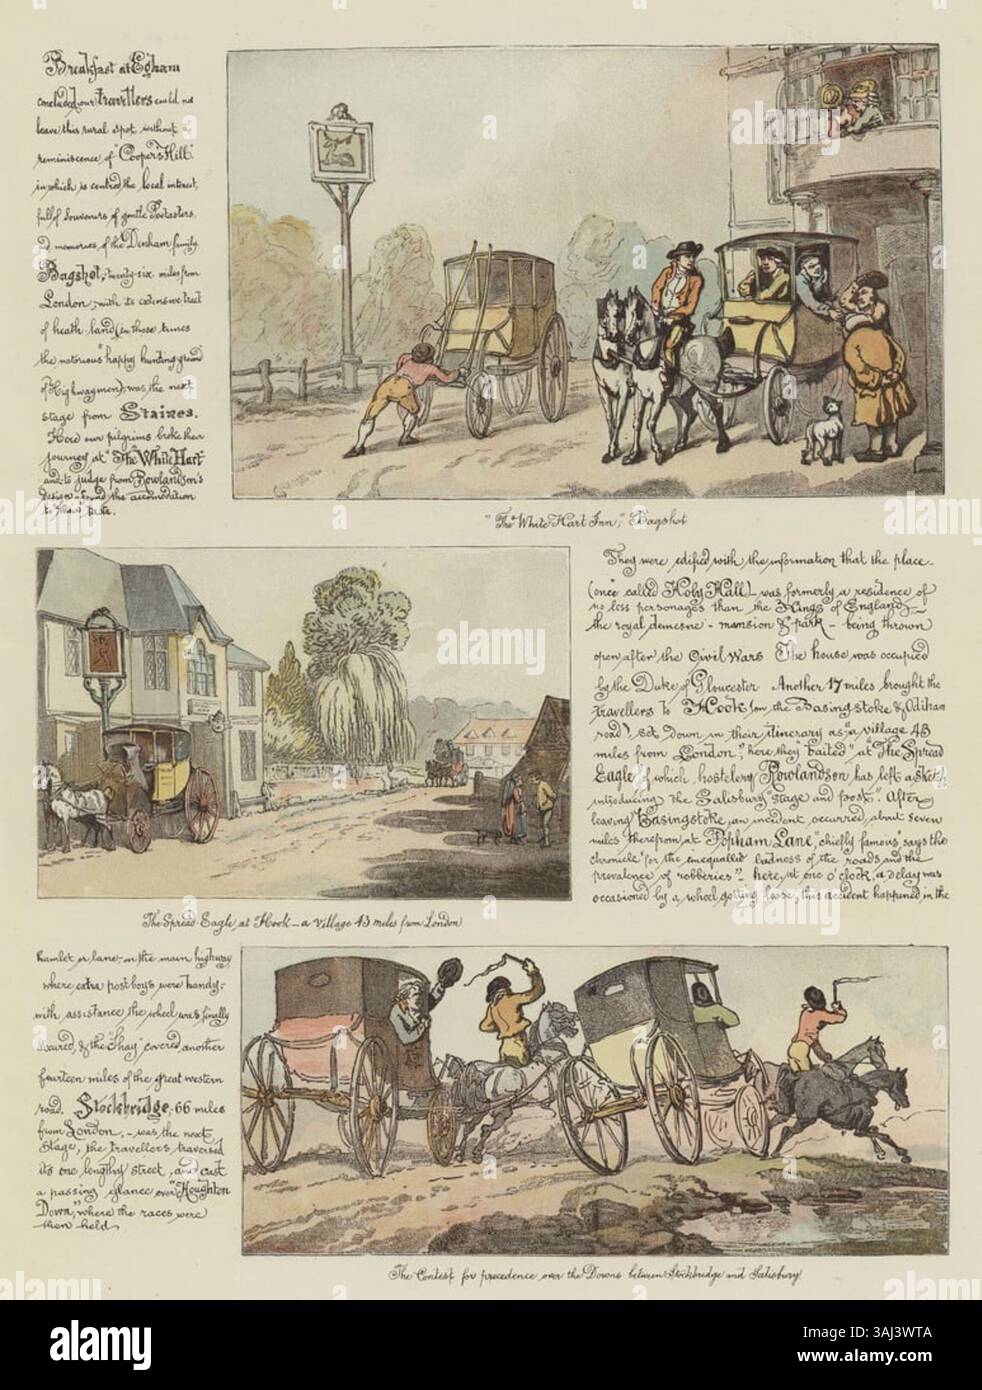 Breakfast at Egham
concluded, our travellers could not
leave this rural spot without a
reminiscence of "Coopers Hill"
in which is centred the local interest,
full of souvenirs of gentle Poetasters,
and memories of the Denham family.
Bagshot, twenty-six miles from
London, with its extensive tract
of heath-land (in those times
the notorious "happy hunting ground
of Highwaymen), was the next
stage from Staines.
Here our pilgrims broke their
journey at "The White Hart"
and to judge from Rowlandson's
design - found the accomodation
to their taste.
"The White Hart Inn," Bagshot
They were edified with the information that the place -
(once called Holy Hall) - was formerly a residence of
no less personages than the Kings of England; -
the royal demesne - mansion & park - being thrown
open after the Civil Wars The house was occupied
by the Duke of Gloucester Another 17 miles brought the
travellers to Hook (on the Basingstoke & Odiham
road), set down in their itinerary as "a village 43
miles from London," here they baited" at "The Spread
Eagle", of which hostelery Rowlandson has left a sketch
introducing the Salisbury "stage and post". After
leaving Basingstoke, an incident occurred about seven
miles therefrom at Popham Lane, "chiefly famous" says the
chronicle "for the unequalled badness of the roads and the
prevalence of robberies" - here, at one o'clock, a delay was
occasioned by a wheel getting loose, this accident happened in the
The Spread Eagle, at Hook - a village 43 miles from London
hamlet or lane, on the main highway,
where extra postboys were handy;
with assistance the wheel was finally
secured, & the "Shay" covered another
fourteen miles of the great western
road. Stockbridge, 66 miles
from London, - was the next
stage, the travellers traversed
its one lengthy street, and cast
a passing glance over "Houghton
Down", where the races were
then held
The Contest for precedence over the Downs between Stockbridge and Salisbury.
alamy
Image ID: 3AJ3WTA
www.alamy.com